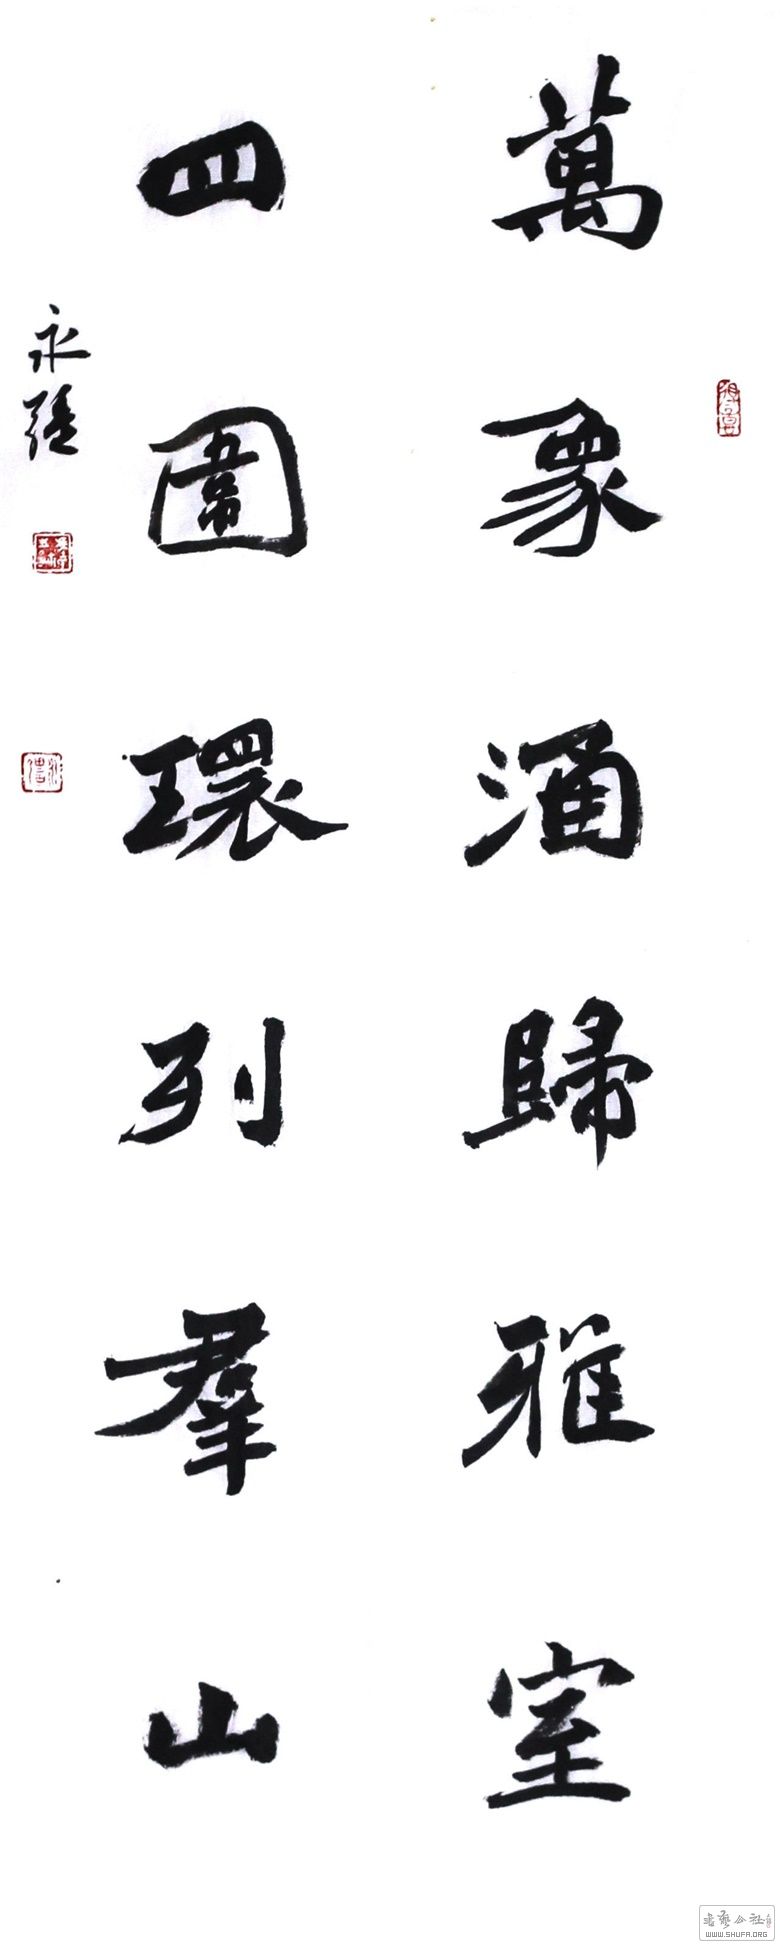 萬象涌歸雅室
四圍環列羣山
永強
书艺公社
WWW.SHUFA.ORG